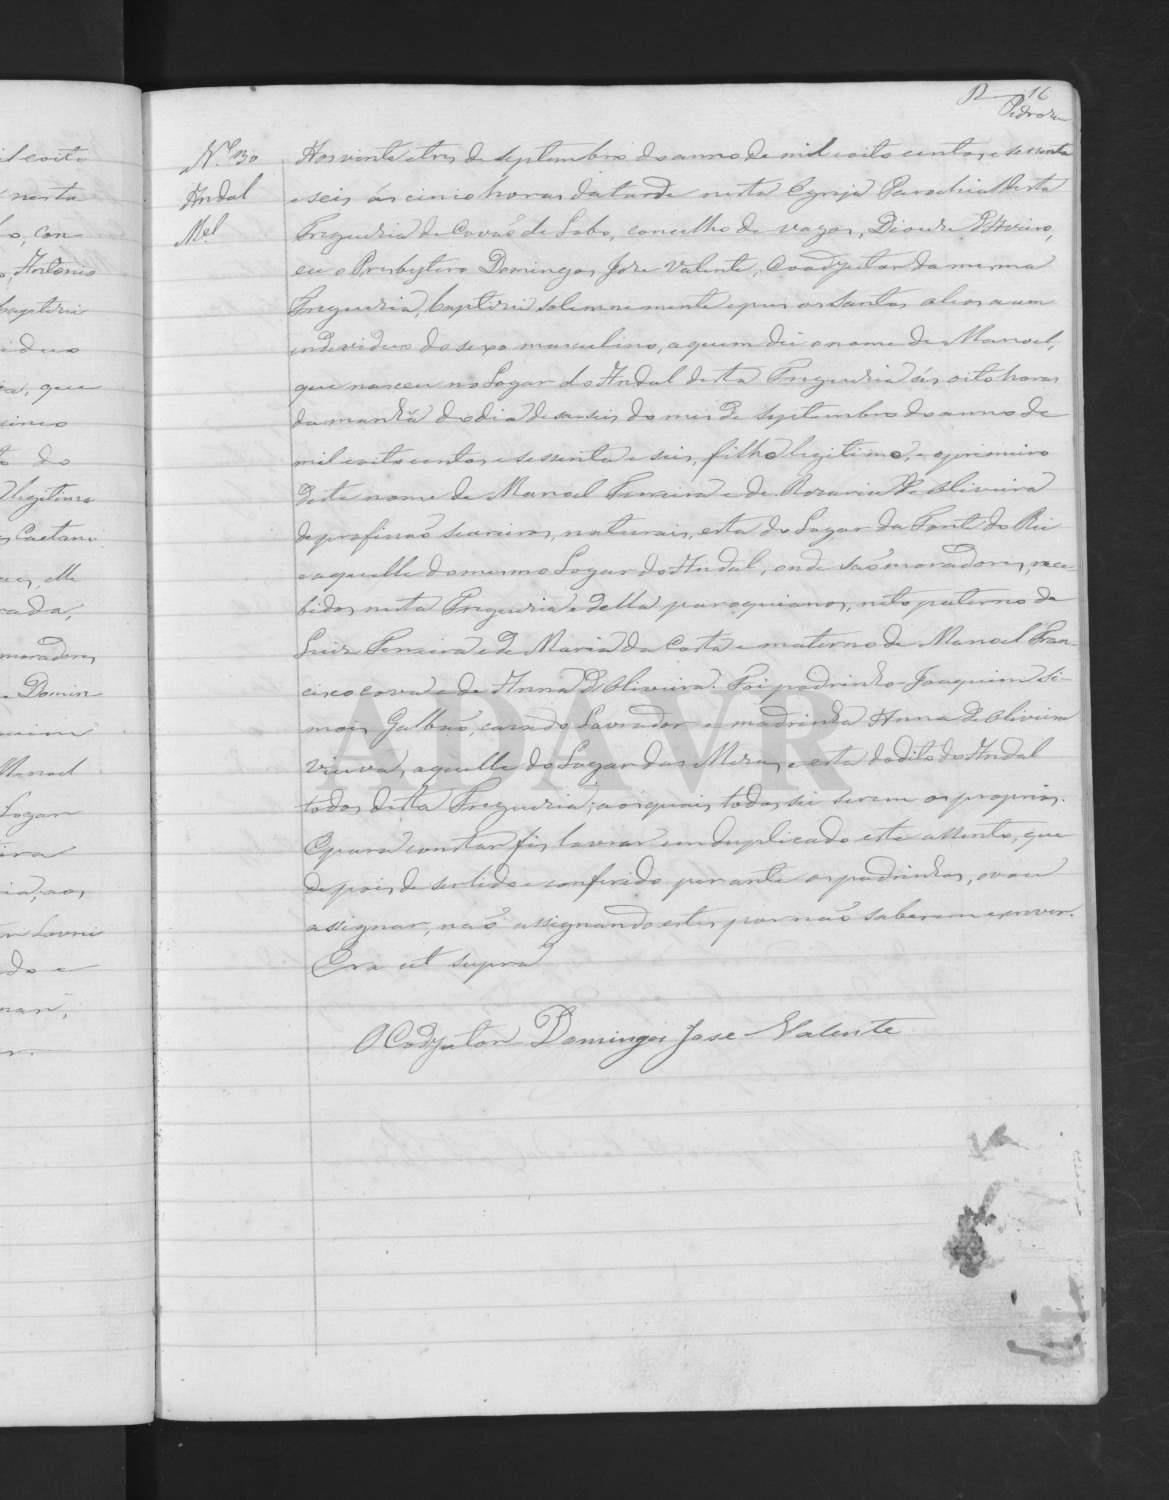 16
Pedroza
N.º 130
Andal
M.el
Aos vinte e tres de septembro do anno de mil e oito centos e sessenta
e seis ás cinco horas da tarde nesta Egreja Parochial desta
Freguesia de Covaõ de Lobo, concelho de vagos, Diocese d'Aveiro,
eu o Presbytero Domingos Jose Valente, Coadjutor da mesma
Freguesia, baptizei solemnemente e pus os santos oleos a um
individuo do sexo masculino, a quem dei o nome de Manoel,
que nasceu no Logar do Andal desta Freguesia ás oito horas
da manhã do dia deseseis do mes de septembro do anno de
mil e oito centos e sessenta e seis, filho legitimo, e o primeiro
deste nome de Manoel Ferreira e de Rosaria de Oliveira
de profissaõ seareiros, naturais, esta do Logar da Fonte do Rei
e aquelle do mesmo Logar do Andal, onde saõ moradores, rece-
bidos nesta Freguesia e della paroquianos, neto paterno de
Luiz Ferreira e de Maria da Costa e materno de Manoel Fran-
cisco cova e de Anna d'Oliveira. Foi padrinho Joaquim Si-
mois Galbaõ, casado Lavrador e madrinha Anna de Oliveira
viuva, aquelle do Logar das Mesas e esta do dito do Andal
todos desta Freguesia, aos quais todos sei serem os proprios.
E para constar fis lavrar em duplicado este assento, que
depois de ser lido e conferido perante os padrinhos, vou
assignar, naõ assignando estes por naõ saberem escrever.
Era ut supra
O Codjutor Domingos Jose Valente
il e oito
nesta
o, con
Antonio
baptizei
iduo
que
cinco
to do
legitimo
Caetano
elle
cada,
moradores
Domin
Manoel
Logar
ira
ia, aos
do e
ADAVR